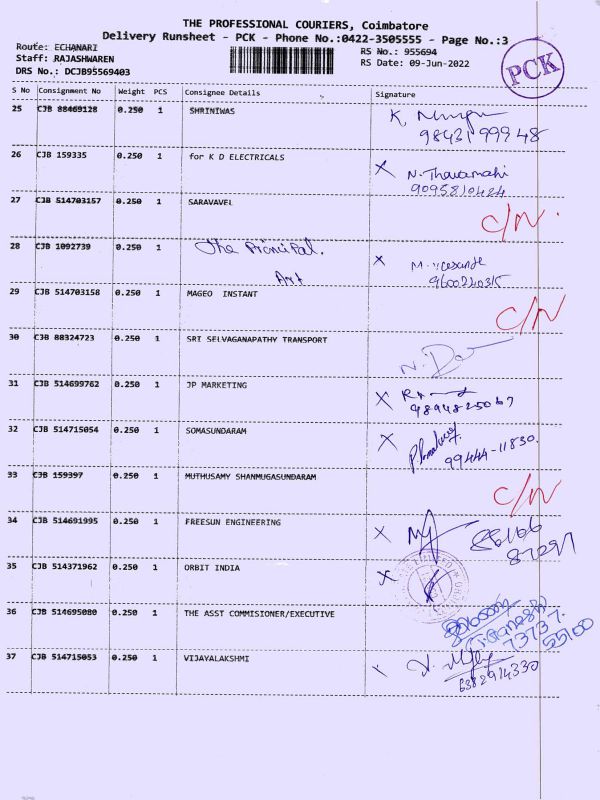 THE PROFESSIONAL COURIERS, Coimbatore
Delivery Runsheet - PCK - Phone No.:0422-3505555 - Page No.:3
Route: ECHANARI
Staff: RAJASHWAREN
DRS No.: DCJB95569403
RS No.: 955694
RS Date: 09-Jun-2022
PCK
S No Consignment No Weight PCS Consignee Details Signature
25 CJB 88469128 0.250 1 SHRINIWAS K.
98431 99948
26 CJB 159335 0.250 1 for K D ELECTRICALS X N. Thavamani
9095810424
27 CJB 514703157 0.250 1 SARAVAVEL C/N.
28 CJB 1092739 0.250 1 The Principal. X M.
Art 9600240315
29 CJB 514703158 0.250 1 MAGEO INSTANT C/N
30 CJB 88324723 0.250 1 SRI SELVAGANAPATHY TRANSPORT
31 CJB 514699762 0.250 1 JP MARKETING X
9894825067
32 CJB 514715054 0.250 1 SOMASUNDARAM X
99444-11830.
33 CJB 159397 0.250 1 MUTHUSAMY SHANMUGASUNDARAM C/N
34 CJB 514691995 0.250 1 FREESUN ENGINEERING X
35 CJB 514371962 0.250 1 ORBIT INDIA X
36 CJB 514695080 0.250 1 THE ASST COMMISIONER/EXECUTIVE
73737.
55100
37 CJB 514715053 0.250 1 VIJAYALAKSHMI
6382914330